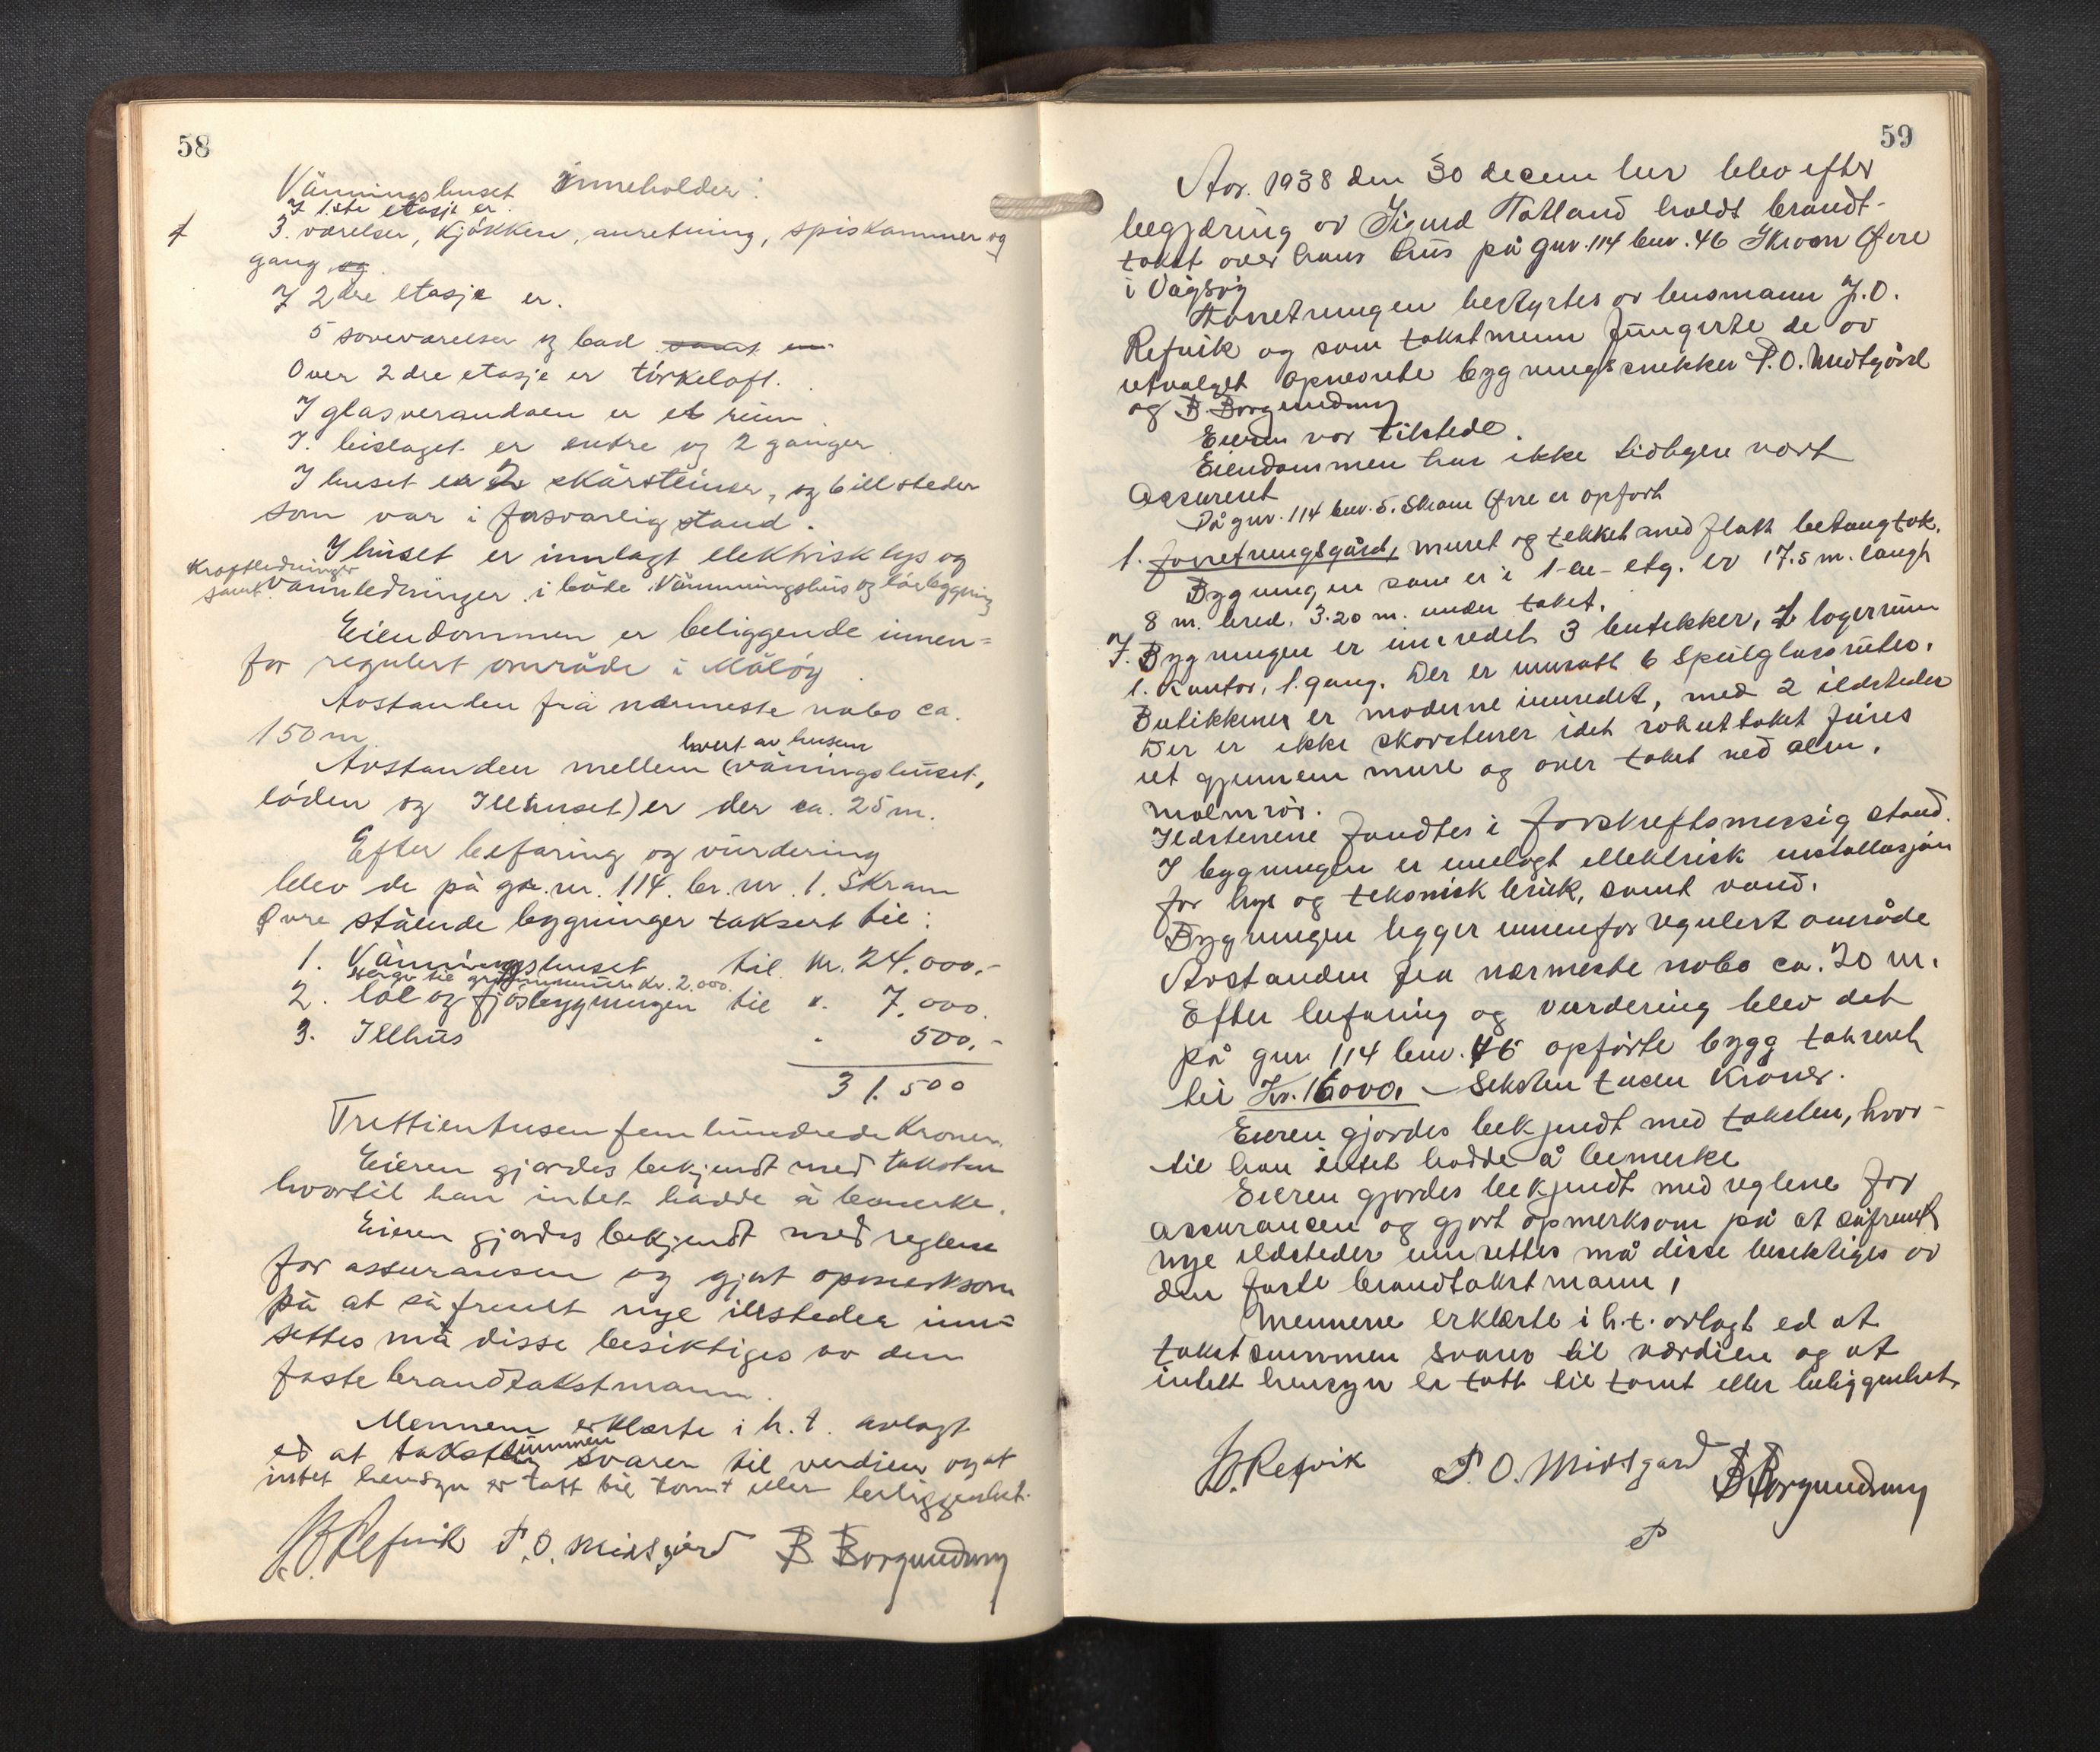 58
Vånningshuset inneholder:
I 1ste etasje er.
3. værelser, kjøkken, anretning, spiskammer og
gang og
I 2dre etasje er.
5 soveværelser og bad samt en
Over 2dre etasje er tørkeloft.
I glasverandaen er et rum
I bislaget er entre og 2 ganger
I huset er 2 skårsteiner, og 6 illsteder
som var i forsvarlig stand.
I huset er innlagt elektrisk lys og
kraftledninger
samt vannledninger i både Vånningshus og løebygning
Eiendommen er beliggende innen=
for regulert område i Måløy
Avstanden fra nærmeste nabo ca.
150 m
hvert av husene
Avstanden mellem (våningshuset,
løden og Illhuset) er der ca. 25 m.
Efter befaring og vurdering
blev de på gr. nr. 114. br. nr. 1. Skram
Øvre stående bygninger taksert til:
1. Vånningshuset til kr. 24.000,-
Herav til grunnmuren kr. 2.000.
2. løe og fjøsbygningen til ". 7.000.
3. Illhus " 500,-
31.500
Trettientusen fem hundrede Kroner.
Eieren gjordes bekjendt med taksten
hvortil han intet hadde å bemerke.
Eieren gjordes bekjendt med reglene
for assuransen og gjort opmerksom
på at såfremt nye illsteder inn=
settes må disse besiktiges av den
faste brandtakstmann.
Mennene erklærte i h. t. avlagt
ed at takstsummen svarer til verdien og at
intet hensyn er tatt til tomt eller beliggenhet.
Refvik P. O. Midtgård B Borgundvåg
59
Aar. 1938 den 30 december blev efter
begjæring av Sigurd Tatland holdt brandt-
takst over hans hus på gnr. 114 bnr. 46 Skram Øvre
i Vågsøy
Forretningen bestyrtes av lensmann J. O.
Refvik og som takstmenn fungerte de av
utvalget opnevnte bygningssnekker P. O. Midtgård
og B. Borgundvåg
Eieren var tilstede.
Eiendommen har ikke tidligere vært
assurert
På gnr. 114 bnr. 5. Skram Øvre er opført
1. forretningsgård, muret og tekket med flatt betongtak.
Bygningen som er i 1-en- etg. er 17.5 m. langt
8 m. bred. 3.20 m. under taket.
I. Bygningen er innredet 3 butikker, 1 lagerrum
1. kontor, 1. gang. Der er innsatt 6 speilglassruter.
Butikkene er moderne innredet, med 2 ildsteder
Der er ikke skorstener idet røkuttaket føres
ut gjennem mure og over taket ved alm.
malmrør.
Ildstenene fandtes i forskriftsmessig stand.
I bygningen er innlagt ellektrisk installasjon
for lys og teknisk bruk, samt vand.
Bygningen ligger innenfor regulert område
Avstanden fra nærmeste nabo ca. 20 m.
Efter befaring og vurdering blev det
på gnr. 114 bnr. 46 opførte bygg taksert
til Kr. 16000, - Seksten tusen Kroner.
Eieren gjordes bekjendt med taksten, hvor-
til han intet hadde å bemerke
Eieren gjordes bekjendt med reglene for
assurancen og gjort opmerksom på at såfremt
nye ildsteder innsettes må disse besiktiges av
den faste brandtakstmann,
Mennene erklærte i h.t. avlagt ed at
takstsummen svarer til værdien og at
intett hensyn er tatt til tomt eller beliggenhet,
Refvik P. O. Midtgard B Borgundvåg